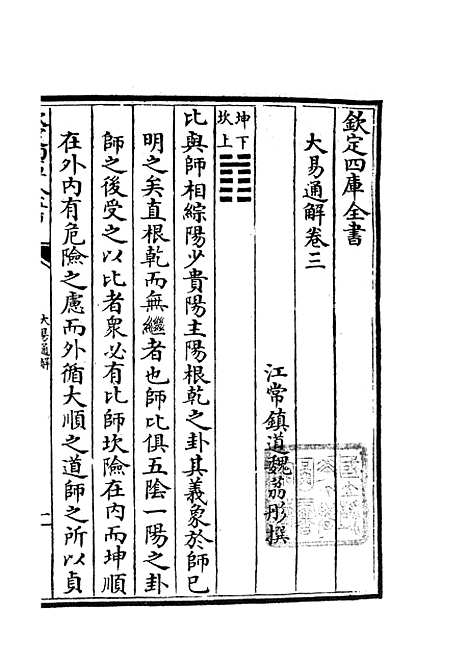 欽定四庫全書
大易通解卷三
江常鎮道魏荔彤撰
坤下
坎上
比與師相綜陽少貴陽主陽根乾之卦其義象於師已
明之矣直根乾而無繼者也師比俱五陰一陽之卦
師之後受之以比者衆必有比師坎險在内而坤順
在外内有危險之慮而外循大順之道師之所以貞
大易通解